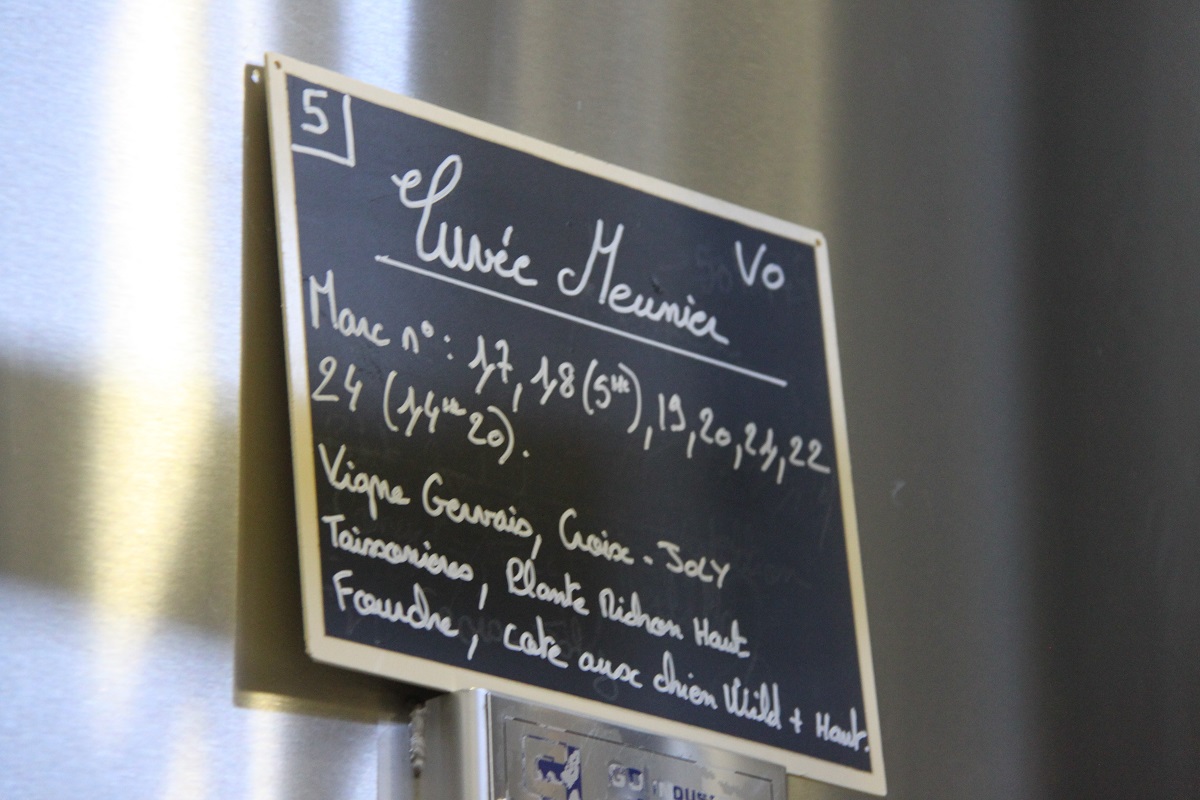 5
Cuvée Meunier Vo
Marc n°: 17, 18 (5hl), 19, 20, 21, 22
24 (14hl 20).
Vigne Gervais, Croix - JOLY
Taissonières, Plante Michon Haut
Foudre, cote aux chien Wild + Haut.